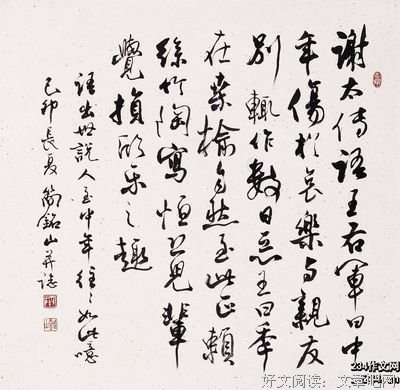 謝太傅語王右軍曰中
年傷於哀樂與親友
別輒作數日惡王曰年
在桑榆自然至此正賴
絲竹陶寫恒恐兒輩
覺損欣樂之趣
語出世說人至中年往〻如此噫
己卯長夏簡銘山并誌
234作文网
好文阅读：文章吧网